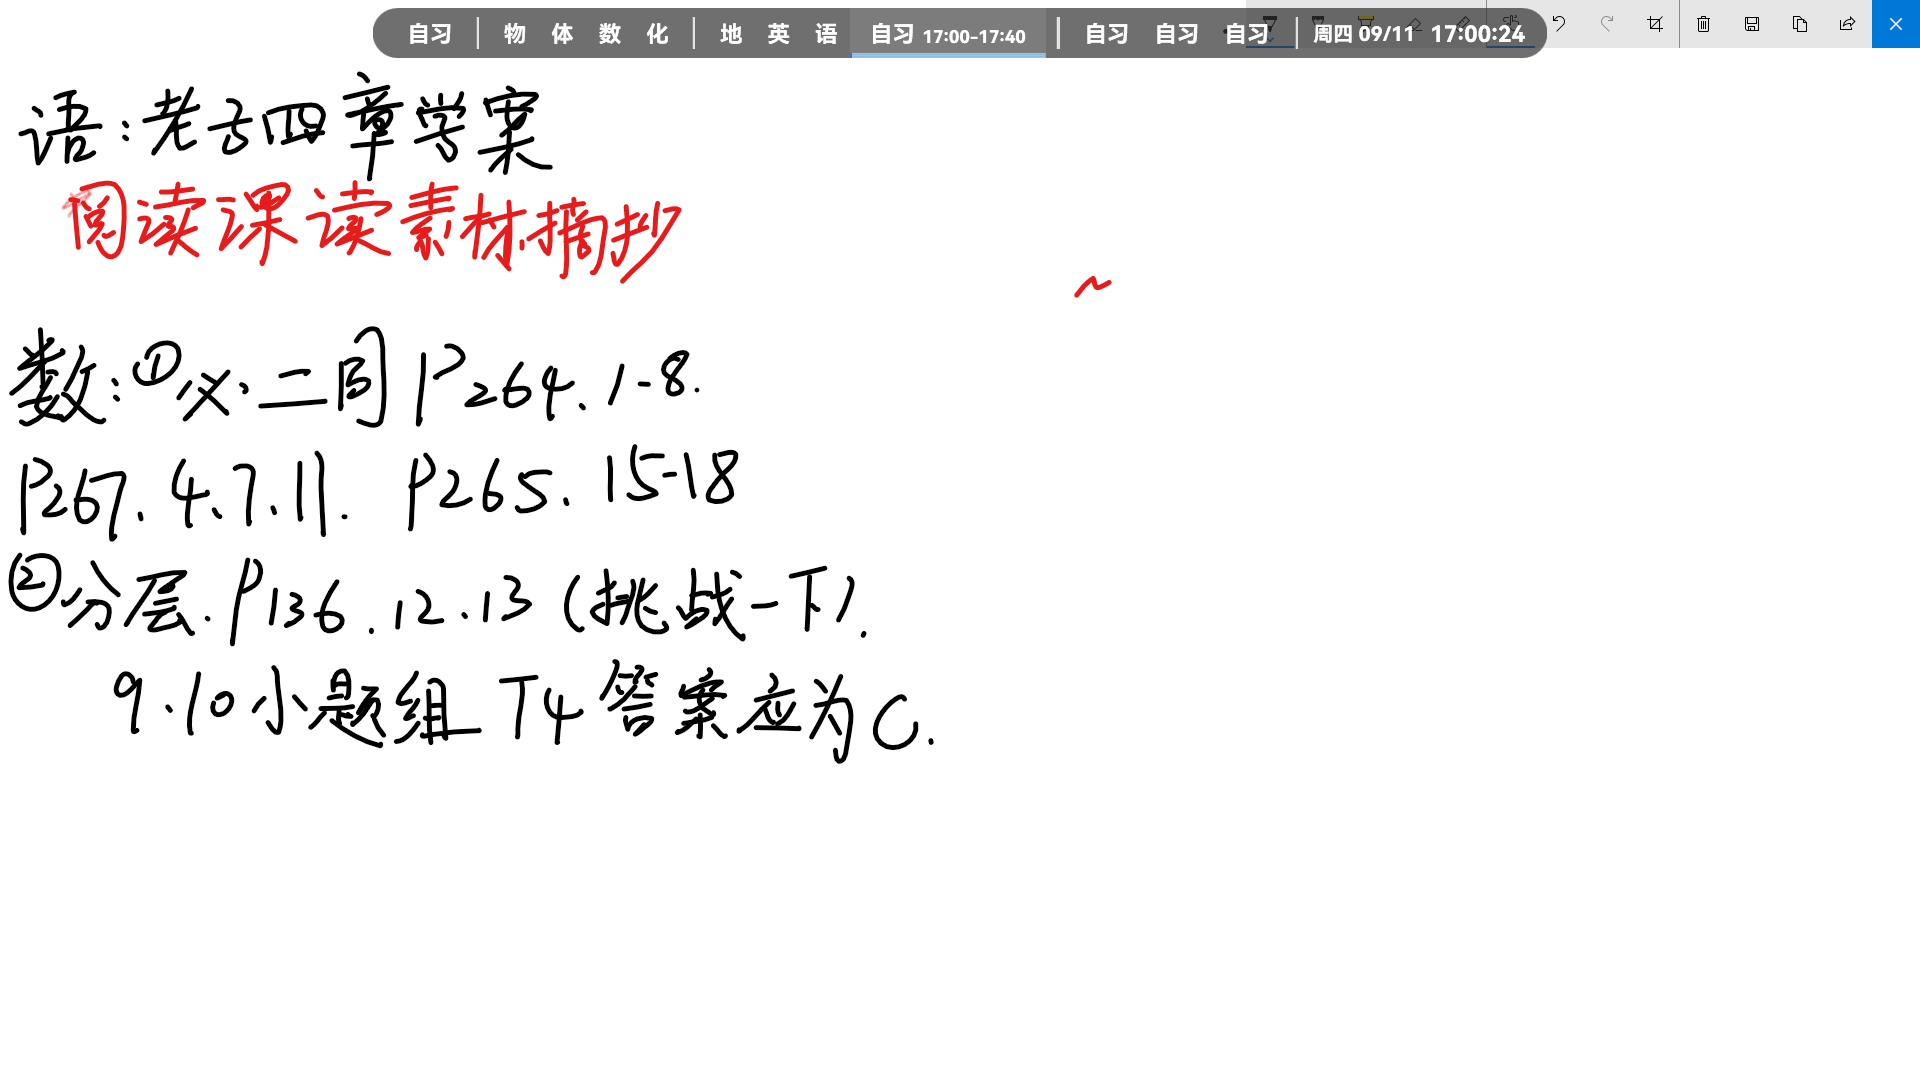 自习 | 物 体 数 化 | 地 英 语 自习 17:00-17:40 | 自习 自习 自习 | 周四 09/11 17:00:24
语:老子四章学案
阅读课读素材摘抄
数:①必二同P264.1-8.
P267.4.7.11. P265.15-18
②分层.P136.12.13(挑战一下).
9.10小题组T4答案应为C.